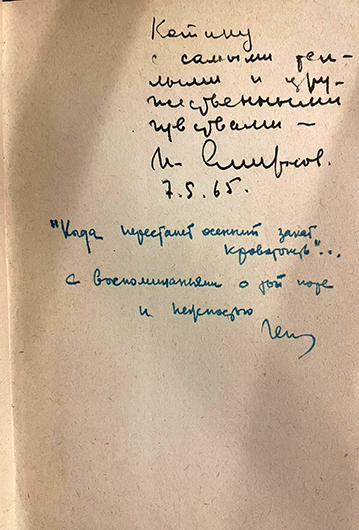 Котину
с самыми теп-
лыми и дру-
жественными
чувствами —
И. Смирнов.
7.5.65.
"Когда перестанет осенний закат
кровоточить"...
с воспоминаньями о той поре
и нежностью